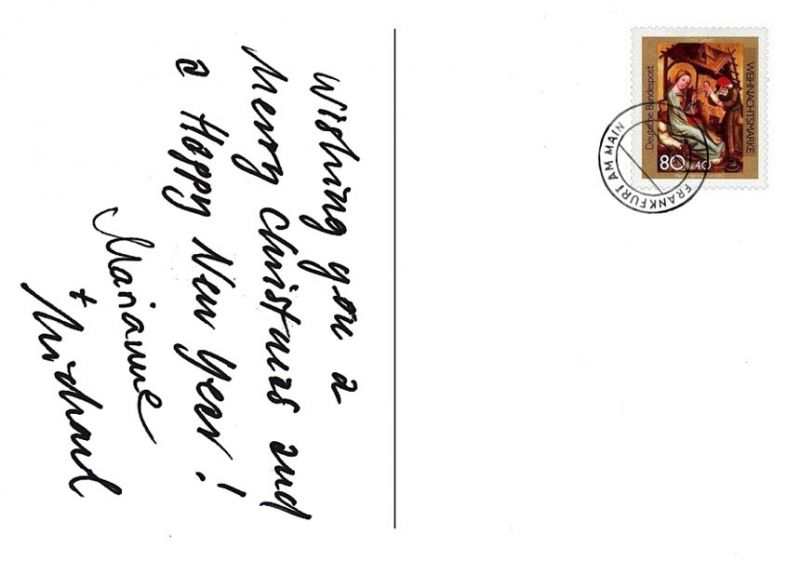 Wishing you a
Merry Christmas and
a Happy New Year!
Marianne
+ Michael
Deutsche Bundespost
WEIHNACHTSMARKE
80+40
FRANKFURT AM MAIN